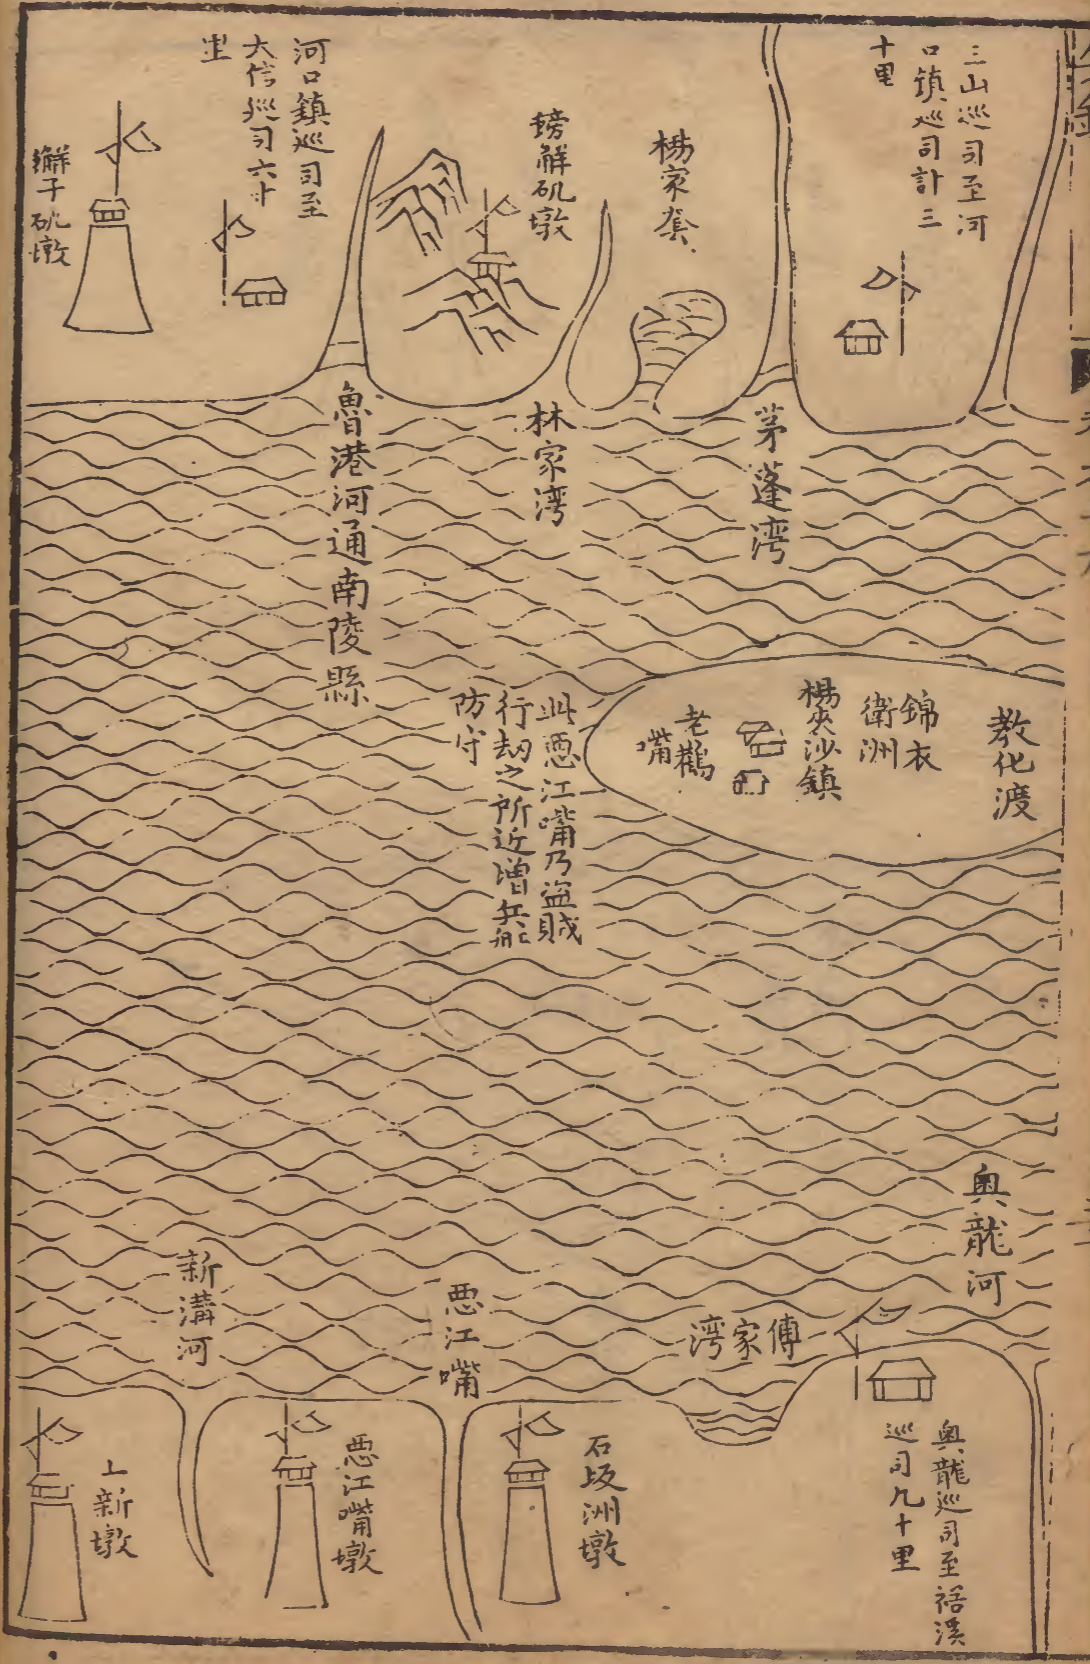 三山巡司至河
口鎮巡司計三
十里
楊家套
螃蠏矶墩
河口鎮巡司至
大信巡司六十
里
蠏子矶墩
茅蓬湾
林家湾
魯港河通南陵縣
教化渡
錦衣
衛洲
楊夾沙鎮
老鸛
嘴
此惡江嘴乃盗賊
行刼之所近增兵舩
防守
奥龍河
傅家湾
惡江嘴
新溝河
奥龍巡司至裕溪
巡司九十里
石坂洲墩
惡江嘴墩
上新墩